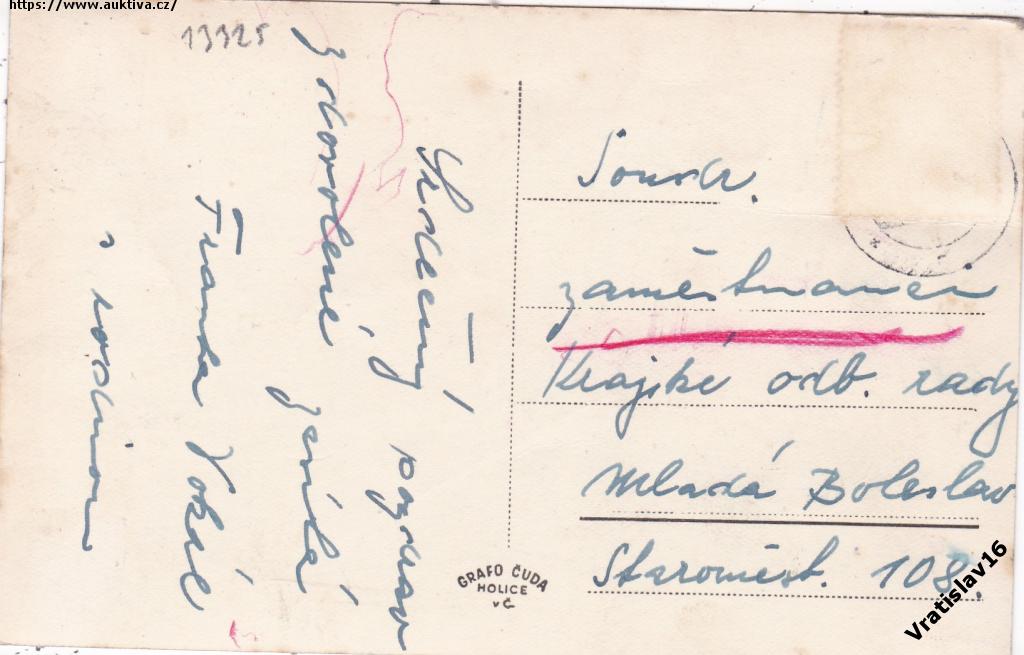 https://www.auktiva.cz/
13325
Srdečný pozdrav
z dovolené zasílá
Franta Vokál
s rodinou
Soudr.
zaměstnanci
Krajské odb. rady
Mladá Boleslav
Staroměst. 108.
GRAFO ČUDA
HOLICE
VČ
Vratislav16